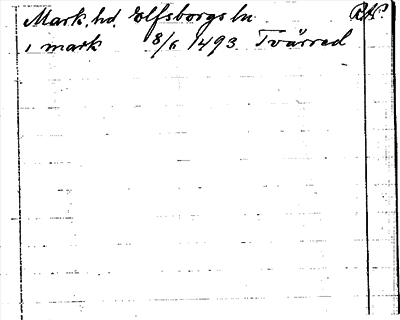 Mark. hd. Elfsborgs ln R.A.P.
i mark 8/6 1493. Tvärred